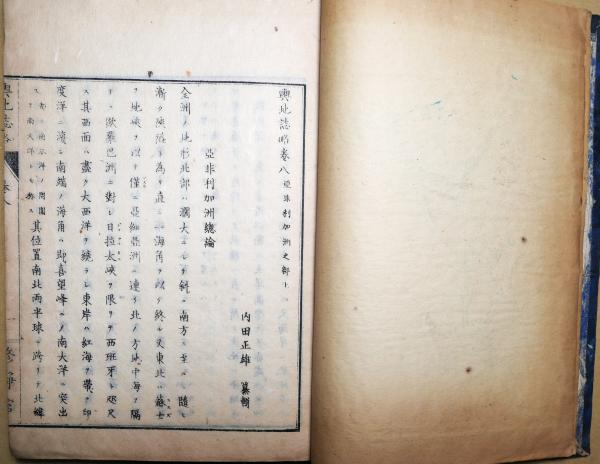 輿地誌略卷八 亞非利加洲之部上
內田正雄 纂輯
亞非利加洲總論
全洲ノ地形北部ハ濶大ニシテ斜ニ南方ニ至ルニ隨ヒ
漸ク狹隘ト為リ直ニ一海角ヲ以テ終ル又東北ハ蘇士
ヲ地峽ヲ以テ僅ニ亞細亞洲ニ連リ北ノ方地中海ヲ隔
テ歐羅巴洲ニ對シ日拉太峽ヲ限リテ西班牙ト咫尺
ス其西面ハ盡ク大西洋ヲ繞ラシ東岸ハ紅海ヲ帶ヒ印
度洋ニ濱シ南端ノ海角ハ即喜望峰ニシテ南大洋ニ突出
ス 其位置南北兩半球ニ跨リテ北緯
輿地誌略 卷八 一 修靜舘